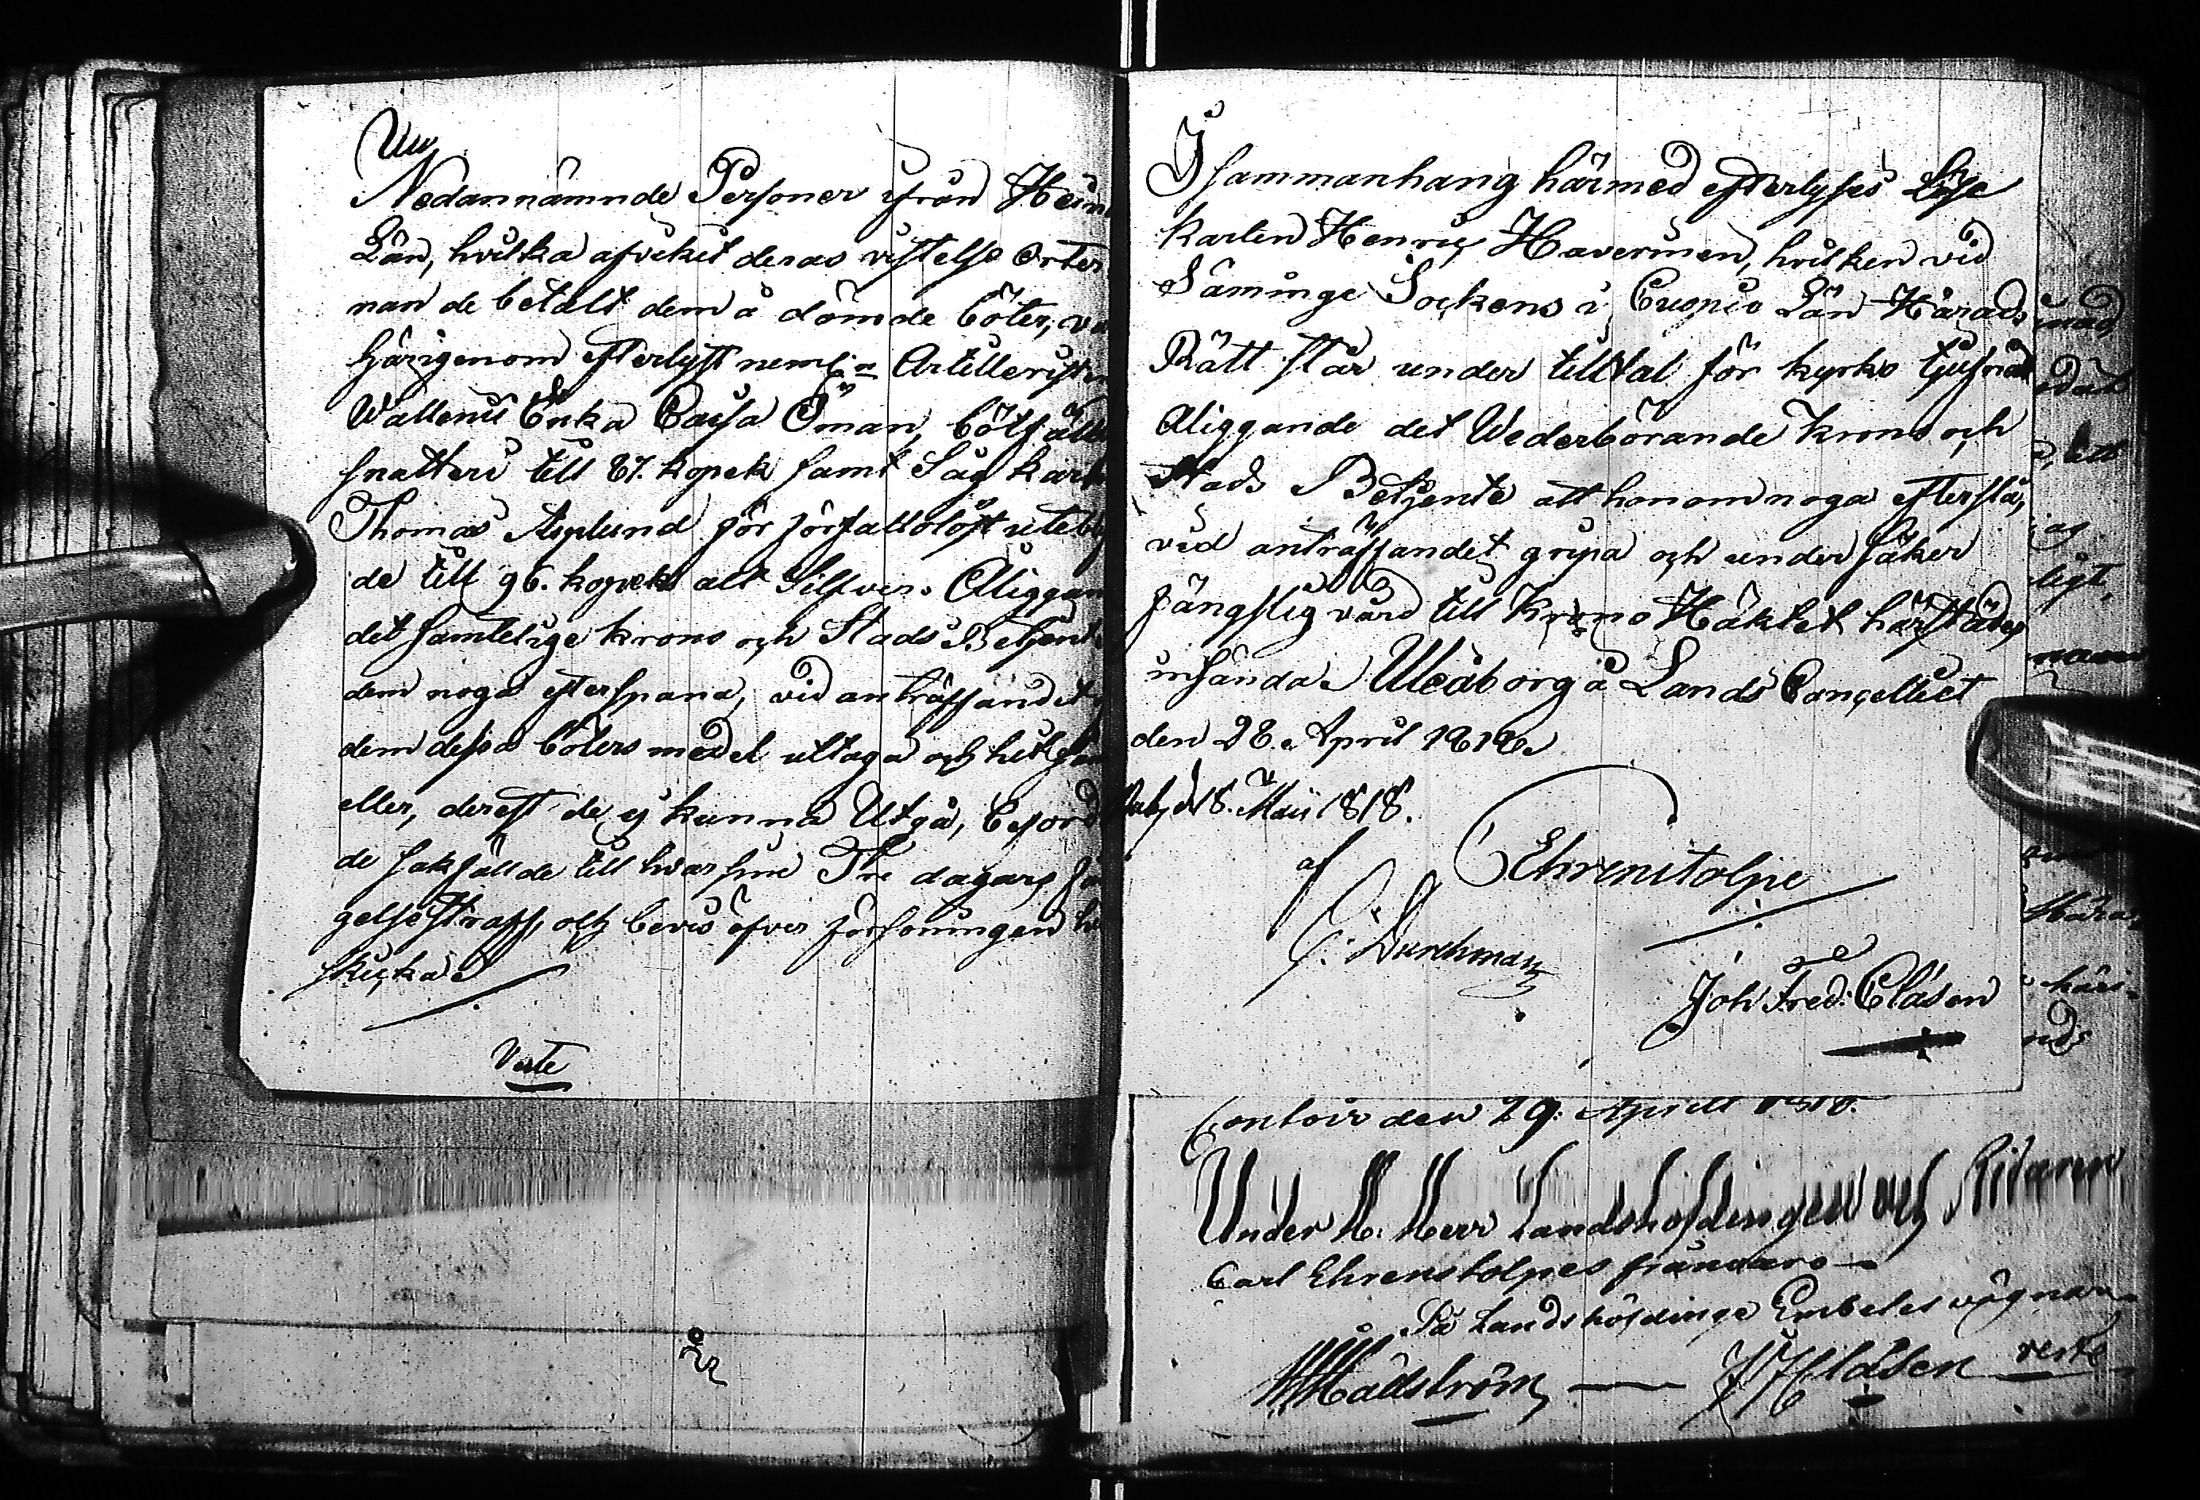 Nedannämnde Personer ifrån Hein
Län, hvilka afvikit deras vistelse Orter
nan de betalt dem å dömde böter, va
härigenom efterlyst neml:n Artilleristen
Wallenii Enka Caisa Öman, bötfälld
snatteri till 87. kopek samt Såg karl
Thomas Asplund för förfallolöst utebli
de till 96. kopek alt Silfver. Åliggan
det samtelige krono och Stads Betjent
dem noga efterspana, vid anträffandet
dem dessa böters medel uttaga och hit
eller, derest de ej kunna Utgå, beford
de sakfällde till hvarsine Tre dagars fä
gelse straff, och bevis öfver försoningen hi
skicka
Verte
I sammanhang härmed efterlyses Löse
karlen Henric Haverinen, hvilken vid
Säminge Sockens i Cuopio Län Härads
Rätt står under tilltal för kyrko tjufnad
Åliggande det Wederbörande krono och
Stads Betjente att honom noga efterslå,
vid anträffandet gripa och under säker
fängslig vård till Krono Häktet härstädes
insända. Uleåborg å Lands Cancelliet
den 28. April 1818.
d 18. Maii 1818.
af
Ehrenstolpe
Joh Fred: Clåsen
Contoir den 29. Aprill 1818.
Under H: Herr Landshöfdingen och Riddaren
Carl Ehrenstolpes frånvaro
På Landshöfdinge Embetes vägnar
Mådström JF Clåsen
verte